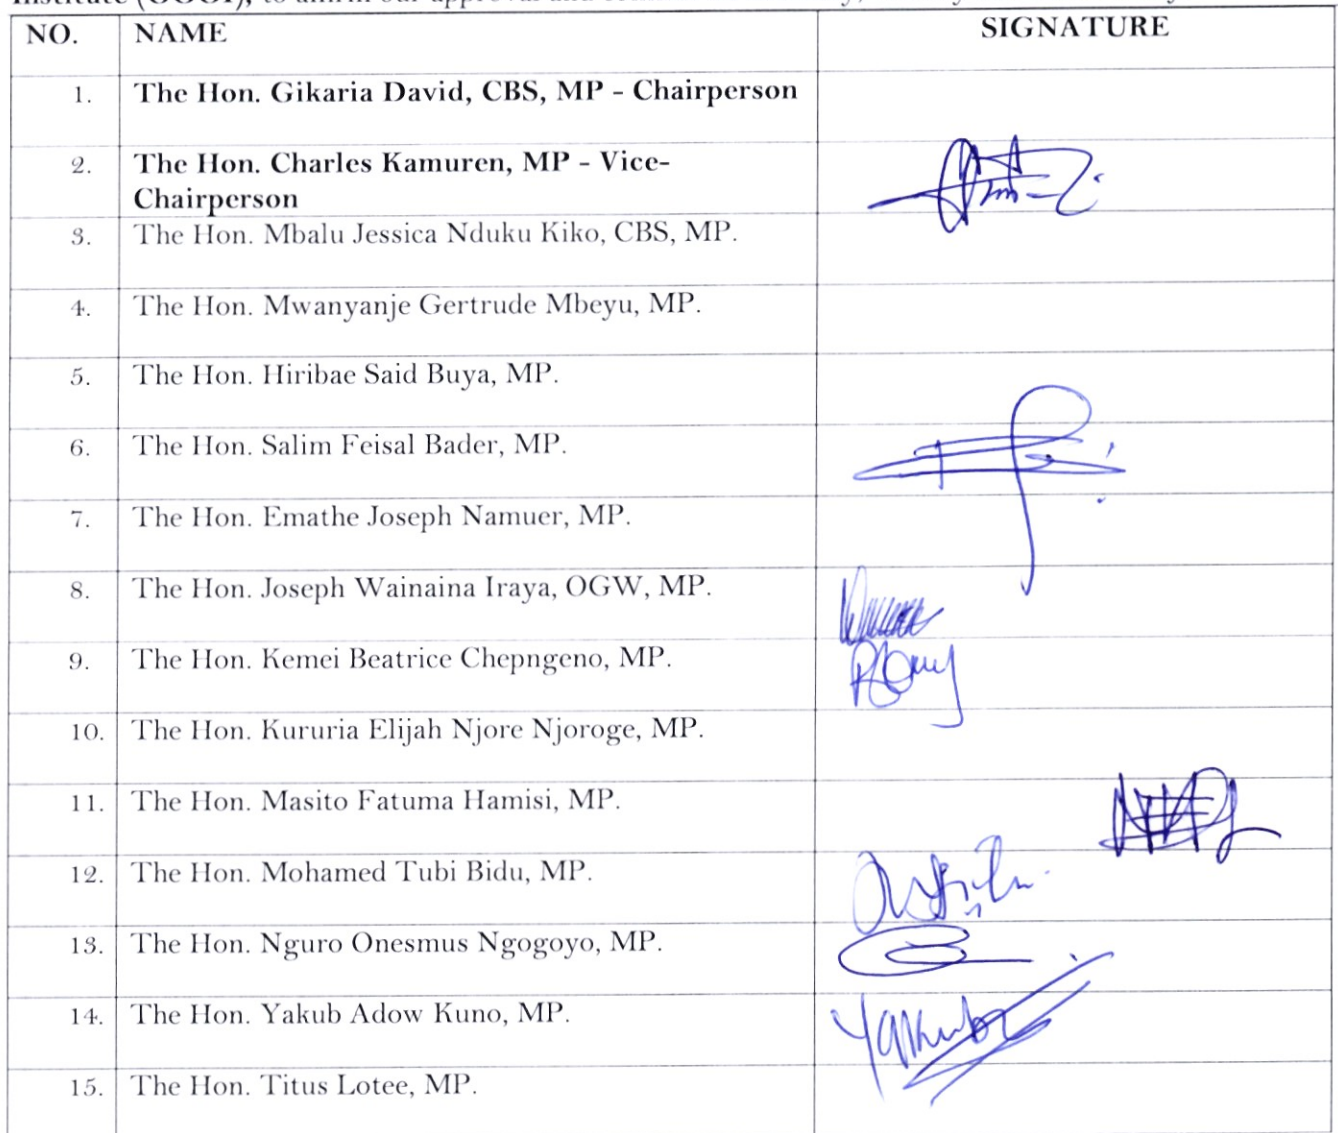 Institute (GGGI), to affirm our approval and
NO. NAME SIGNATURE
1. The Hon. Gikaria David, CBS, MP - Chairperson
2. The Hon. Charles Kamuren, MP - Vice-
Chairperson
3. The Hon. Mbalu Jessica Nduku Kiko, CBS, MP.
4. The Hon. Mwanyanje Gertrude Mbeyu, MP.
5. The Hon. Hiribae Said Buya, MP.
6. The Hon. Salim Feisal Bader, MP.
7. The Hon. Emathe Joseph Namuer, MP.
8. The Hon. Joseph Wainaina Iraya, OGW, MP.
9. The Hon. Kemei Beatrice Chepngeno, MP.
10. The Hon. Kururia Elijah Njore Njoroge, MP.
11. The Hon. Masito Fatuma Hamisi, MP.
12. The Hon. Mohamed Tubi Bidu, MP.
13. The Hon. Nguro Onesmus Ngogoyo, MP.
14. The Hon. Yakub Adow Kuno, MP.
15. The Hon. Titus Lotee, MP.